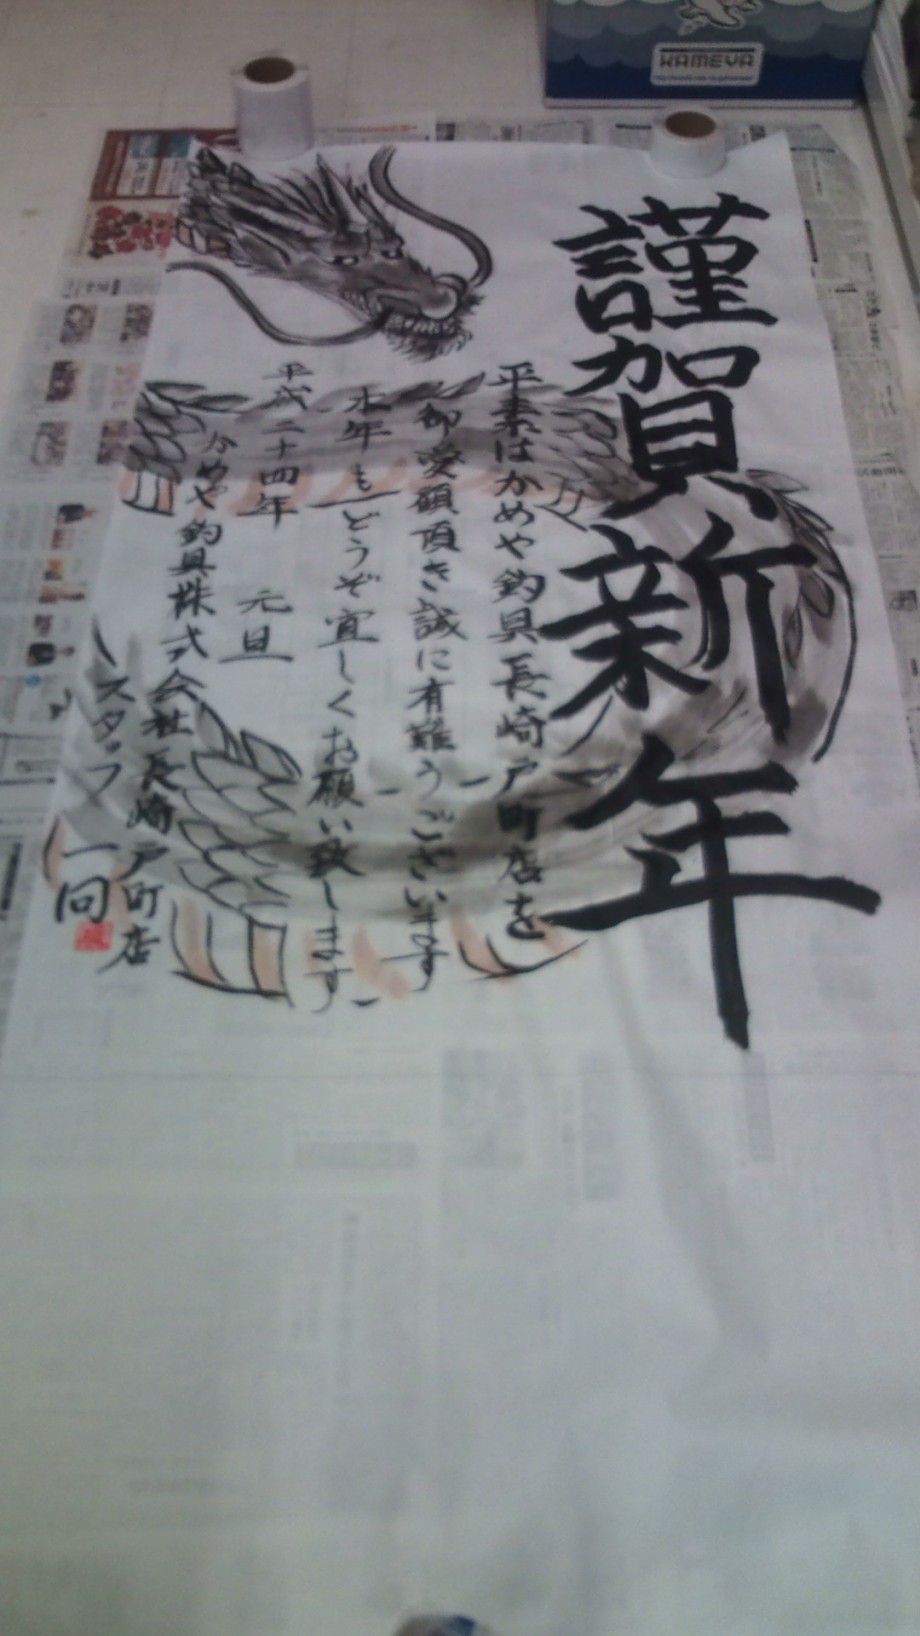 謹賀新年
平素はかめや釣具長崎戸町店を
御愛顧頂き誠に有難うございます
本年もどうぞ宜しくお願い致します
平成二十四年 元旦
かめや釣具株式会社長崎戸町店
スタッフ一同
KAMEYA